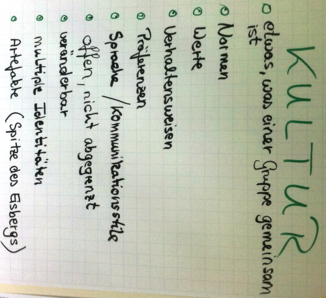 KULTUR
etwas, was einer Gruppe gemeinsam
ist
Normen
Werte
Verhaltensweisen
Präferenzen
Sprache / Kommunikationsstile
offen, nicht abgegrenzt
veränderbar
multiple Identitäten
Artefakte (Spitze des Eisbergs)